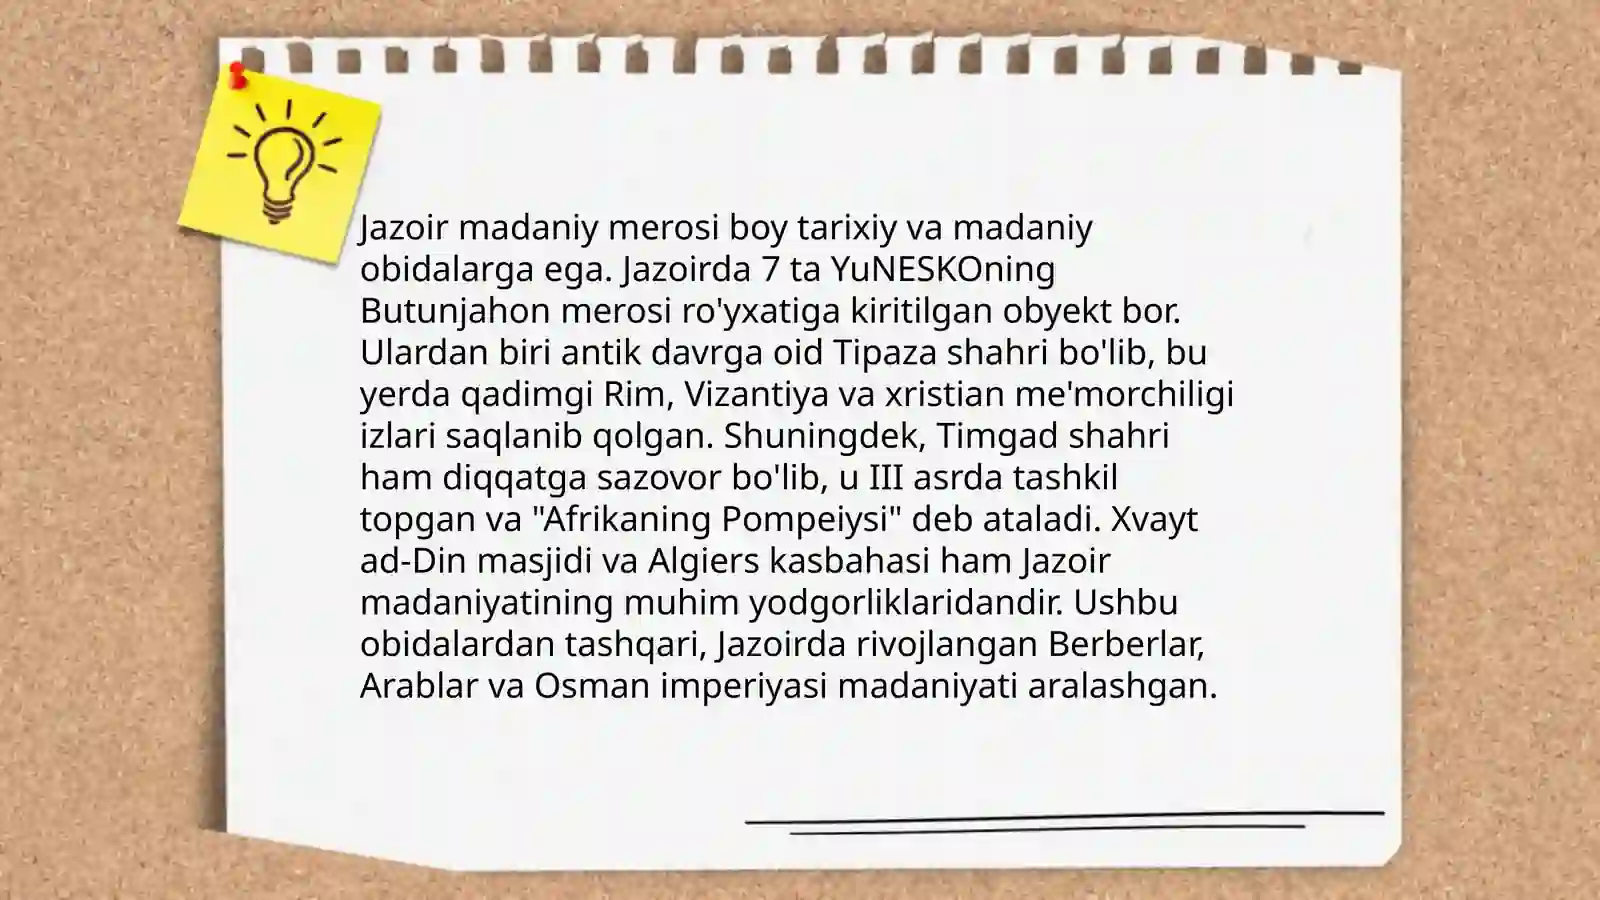 Jazoir madaniy merosi boy tarixiy va madaniy
obidalarga ega. Jazoirda 7 ta YuNESKOning
Butunjahon merosi ro'yxatiga kiritilgan obyekt bor.
Ulardan biri antik davrga oid Tipaza shahri bo'lib, bu
yerda qadimgi Rim, Vizantiya va xristian me'morchiligi
izlari saqlanib qolgan. Shuningdek, Timgad shahri
ham diqqatga sazovor bo'lib, u III asrda tashkil
topgan va "Afrikaning Pompeiysi" deb ataladi. Xvayt
ad-Din masjidi va Algiers kasbahasi ham Jazoir
madaniyatining muhim yodgorliklaridandir. Ushbu
obidalardan tashqari, Jazoirda rivojlangan Berberlar,
Arablar va Osman imperiyasi madaniyati aralashgan.